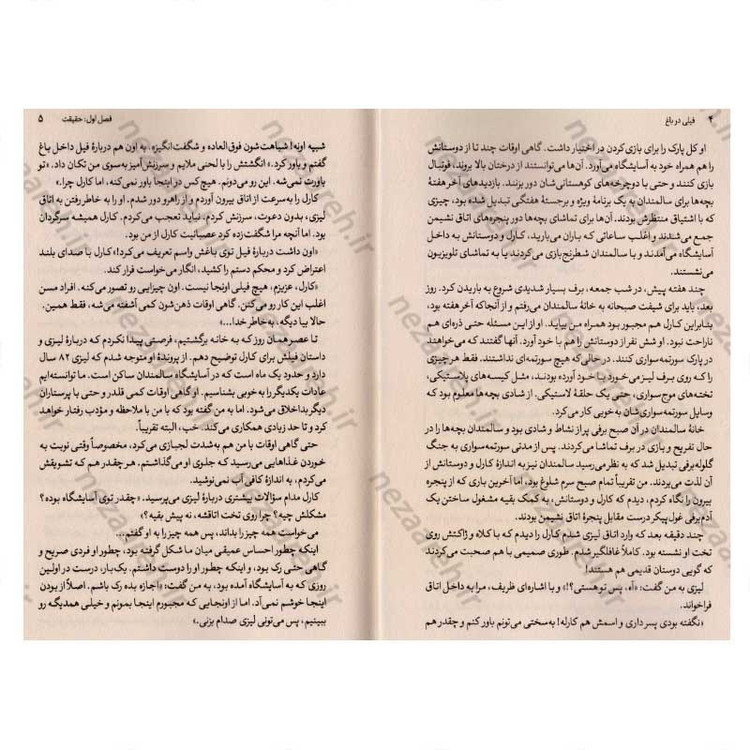 ۴ فیلی در باغ
او کل پارک را برای بازی‌کردن در اختیار داشت. گاهی اوقات چند تا از دوستانش
را هم همراه خود به آسایشگاه می‌آورد. آن‌ها می‌توانستند از درختان بالا بروند، فوتبال
بازی کنند و حتی با دوچرخه‌های کوهستانی‌شان دور بزنند. بازدیدهای آخر هفتهٔ
بچه‌ها برای سالمندان به یک برنامهٔ ویژه و برجستهٔ هفتگی تبدیل شده بود، چیزی
که با اشتیاق منتظرش بودند. آن‌ها برای تماشای بچه‌ها دور پنجره‌های اتاق نشیمن
جمع می‌شدند و اغلب ساعاتی که باران می‌بارید، کارل و دوستانش به داخل
آسایشگاه می‌آمدند و با سالمندان شطرنج‌بازی می‌کردند یا به تماشای تلویزیون
می‌نشستند.
چند هفته پیش، در شب جمعه، برف بسیار شدیدی شروع به باریدن کرد. روز
بعد، باید برای شیفت صبحانه به خانهٔ سالمندان می‌رفتم و از آنجاکه آخر هفته بود،
بنابراین کارل هم مجبور بود همراه من بیاید. او از این مسئله حتی ذره‌ای هم
ناراحت نبود. او شش نفر از دوستانش را هم با خود آورد. آنها گفتند که می‌خواهند
در پارک سورتمه‌سواری کنند. در حالی‌که هیچ سورتمه‌ای نداشتند. فقط هر چیزی
را که روی برف لیز می‌خورد با خود آورده بودند. مثل کیسه‌های پلاستیکی،
تخته‌های موج‌سواری، حتی یک حلقهٔ لاستیکی. از شادی بچه‌ها معلوم بود که
وسایل سورتمه‌سواری‌شان به‌خوبی کار می‌کرد.
خانهٔ سالمندان در آن صبح برفی پر از نشاط و شادی بود و سالمندان بچه‌ها را در
حال تفریح و بازی در برف تماشا می‌کردند. پس از مدتی سورتمه‌سواری به جنگ
گلوله‌برفی تبدیل شد که به نظر می‌رسید سالمندان نیز به اندازهٔ کارل و دوستانش از
آن لذت می‌بردند. من تقریباً تمام صبح سرم شلوغ بود، اما آخرین باری که از پنجره
بیرون را نگاه کردم، دیدم که کارل و دوستانش، به کمک بقیه مشغول ساختن یک
آدم‌برفی غول‌پیکر درست مقابل پنجرهٔ اتاق نشیمن بودند.
چند دقیقه بعد که وارد اتاق لیزی شدم کارل را دیدم که با کلاه و ژاکتش روی
تخت او نشسته بود. کاملاً غافلگیر شدم. طوری صمیمی با هم صحبت می‌کردند
که گویی دوستان قدیمی هم هستند!
لیزی به من گفت: «آه، پس تو هستی؟!» و با اشاره‌ای ظریف، مرا به داخل اتاق
فراخواند.
«نگفته بودی پسر داری و اسمش هم کارله! به‌سختی می‌تونم باور کنم و چقدر هم
فصل اول: حقیقت ۵
شبیه اونه! شباهت‌شون فوق‌العاده و شگفت‌انگیزه. به اون هم دربارهٔ فیل داخل باغ
گفتم و باور کرد.» انگشتش را با لحنی ملایم و سرزنش‌آمیز به سوی من تکان داد. «تو
باورت نمی‌شه. این رو می‌دونم. هیچ‌کس در اینجا باور نمی‌کنه، اما کارل چرا.»
کارل را به‌سرعت از اتاق بیرون آوردم و از راهرو دور شدم. او را به خاطر رفتن به اتاق
لیزی، بدون دعوت، سرزنش کردم. نباید تعجب می‌کردم. کارل همیشه سرگردان
بود. اما آنچه مرا شگفت‌زده کرد عصبانیت کارل از من بود.
«اون داشت دربارهٔ فیل توی باغش واسم تعریف می‌کرد!» کارل با صدای بلند
اعتراض کرد و محکم دستم را کشید، انگار می‌خواست فرار کند.
«کارل، عزیزم، هیچ فیلی اونجا نیست. اون چیزایی رو تصور می‌کنه. افراد مسن
اغلب این کار رو می‌کنن. گاهی اوقات ذهن‌شون کمی آشفته می‌شه، فقط همین.
حالا بیا دیگه، به‌خاطر خدا...»
تا عصر همان روز که به خانه برگشتیم، فرصتی پیدا نکردم که دربارهٔ لیزی و
داستان فیلش برای کارل توضیح دهم. از پروندهٔ او متوجه شدم که لیزی ۸۲ سال
دارد و حدود یک ماه است که در آسایشگاه سالمندان ساکن است. ما توانسته‌ایم
عادات یکدیگر را به‌خوبی بشناسیم. او گاهی اوقات کمی قلدر و حتی با پرستاران
دیگر بداخلاق می‌شود، اما به من گفته بود که با من با ملاحظه و مؤدب رفتار خواهد
کرد و تا حد زیادی همکاری می‌کند. خب، البته تقریباً.
حتی گاهی اوقات با من هم به‌شدت لجبازی می‌کرد، مخصوصاً وقتی نوبت به
خوردن غذاهایی می‌رسید که جلوی او می‌گذاشتم. هر چقدر هم که تشویقش
می‌کردم، به اندازهٔ کافی آب نمی‌نوشید.
کارل مدام سؤالات بیشتری دربارهٔ لیزی می‌پرسید. «چقدر توی آسایشگاه بوده؟
مشکلش چیه؟ چرا روی تخت اتاقشه، نه پیش بقیه؟»
می‌خواست همه چیز را بداند، پس همه چیز را به او گفتم...
اینکه چطور احساس عمیقی میان ما شکل گرفته بود، چطور او فردی صریح و
گاهی حتی رک بود، و اینکه چطور او را دوست داشتم. یک‌بار، درست در اولین
روزی که به آسایشگاه آمده بود، به من گفت: «اجازه بده رک باشم. اصلاً از بودن
اینجا خوشم نمی‌آد. اما از اونجایی که مجبورم اینجا بمونم و خیلی همدیگه رو
ببینیم، پس می‌تونی لیزی صدام بزنی.»
nezaareh.ir